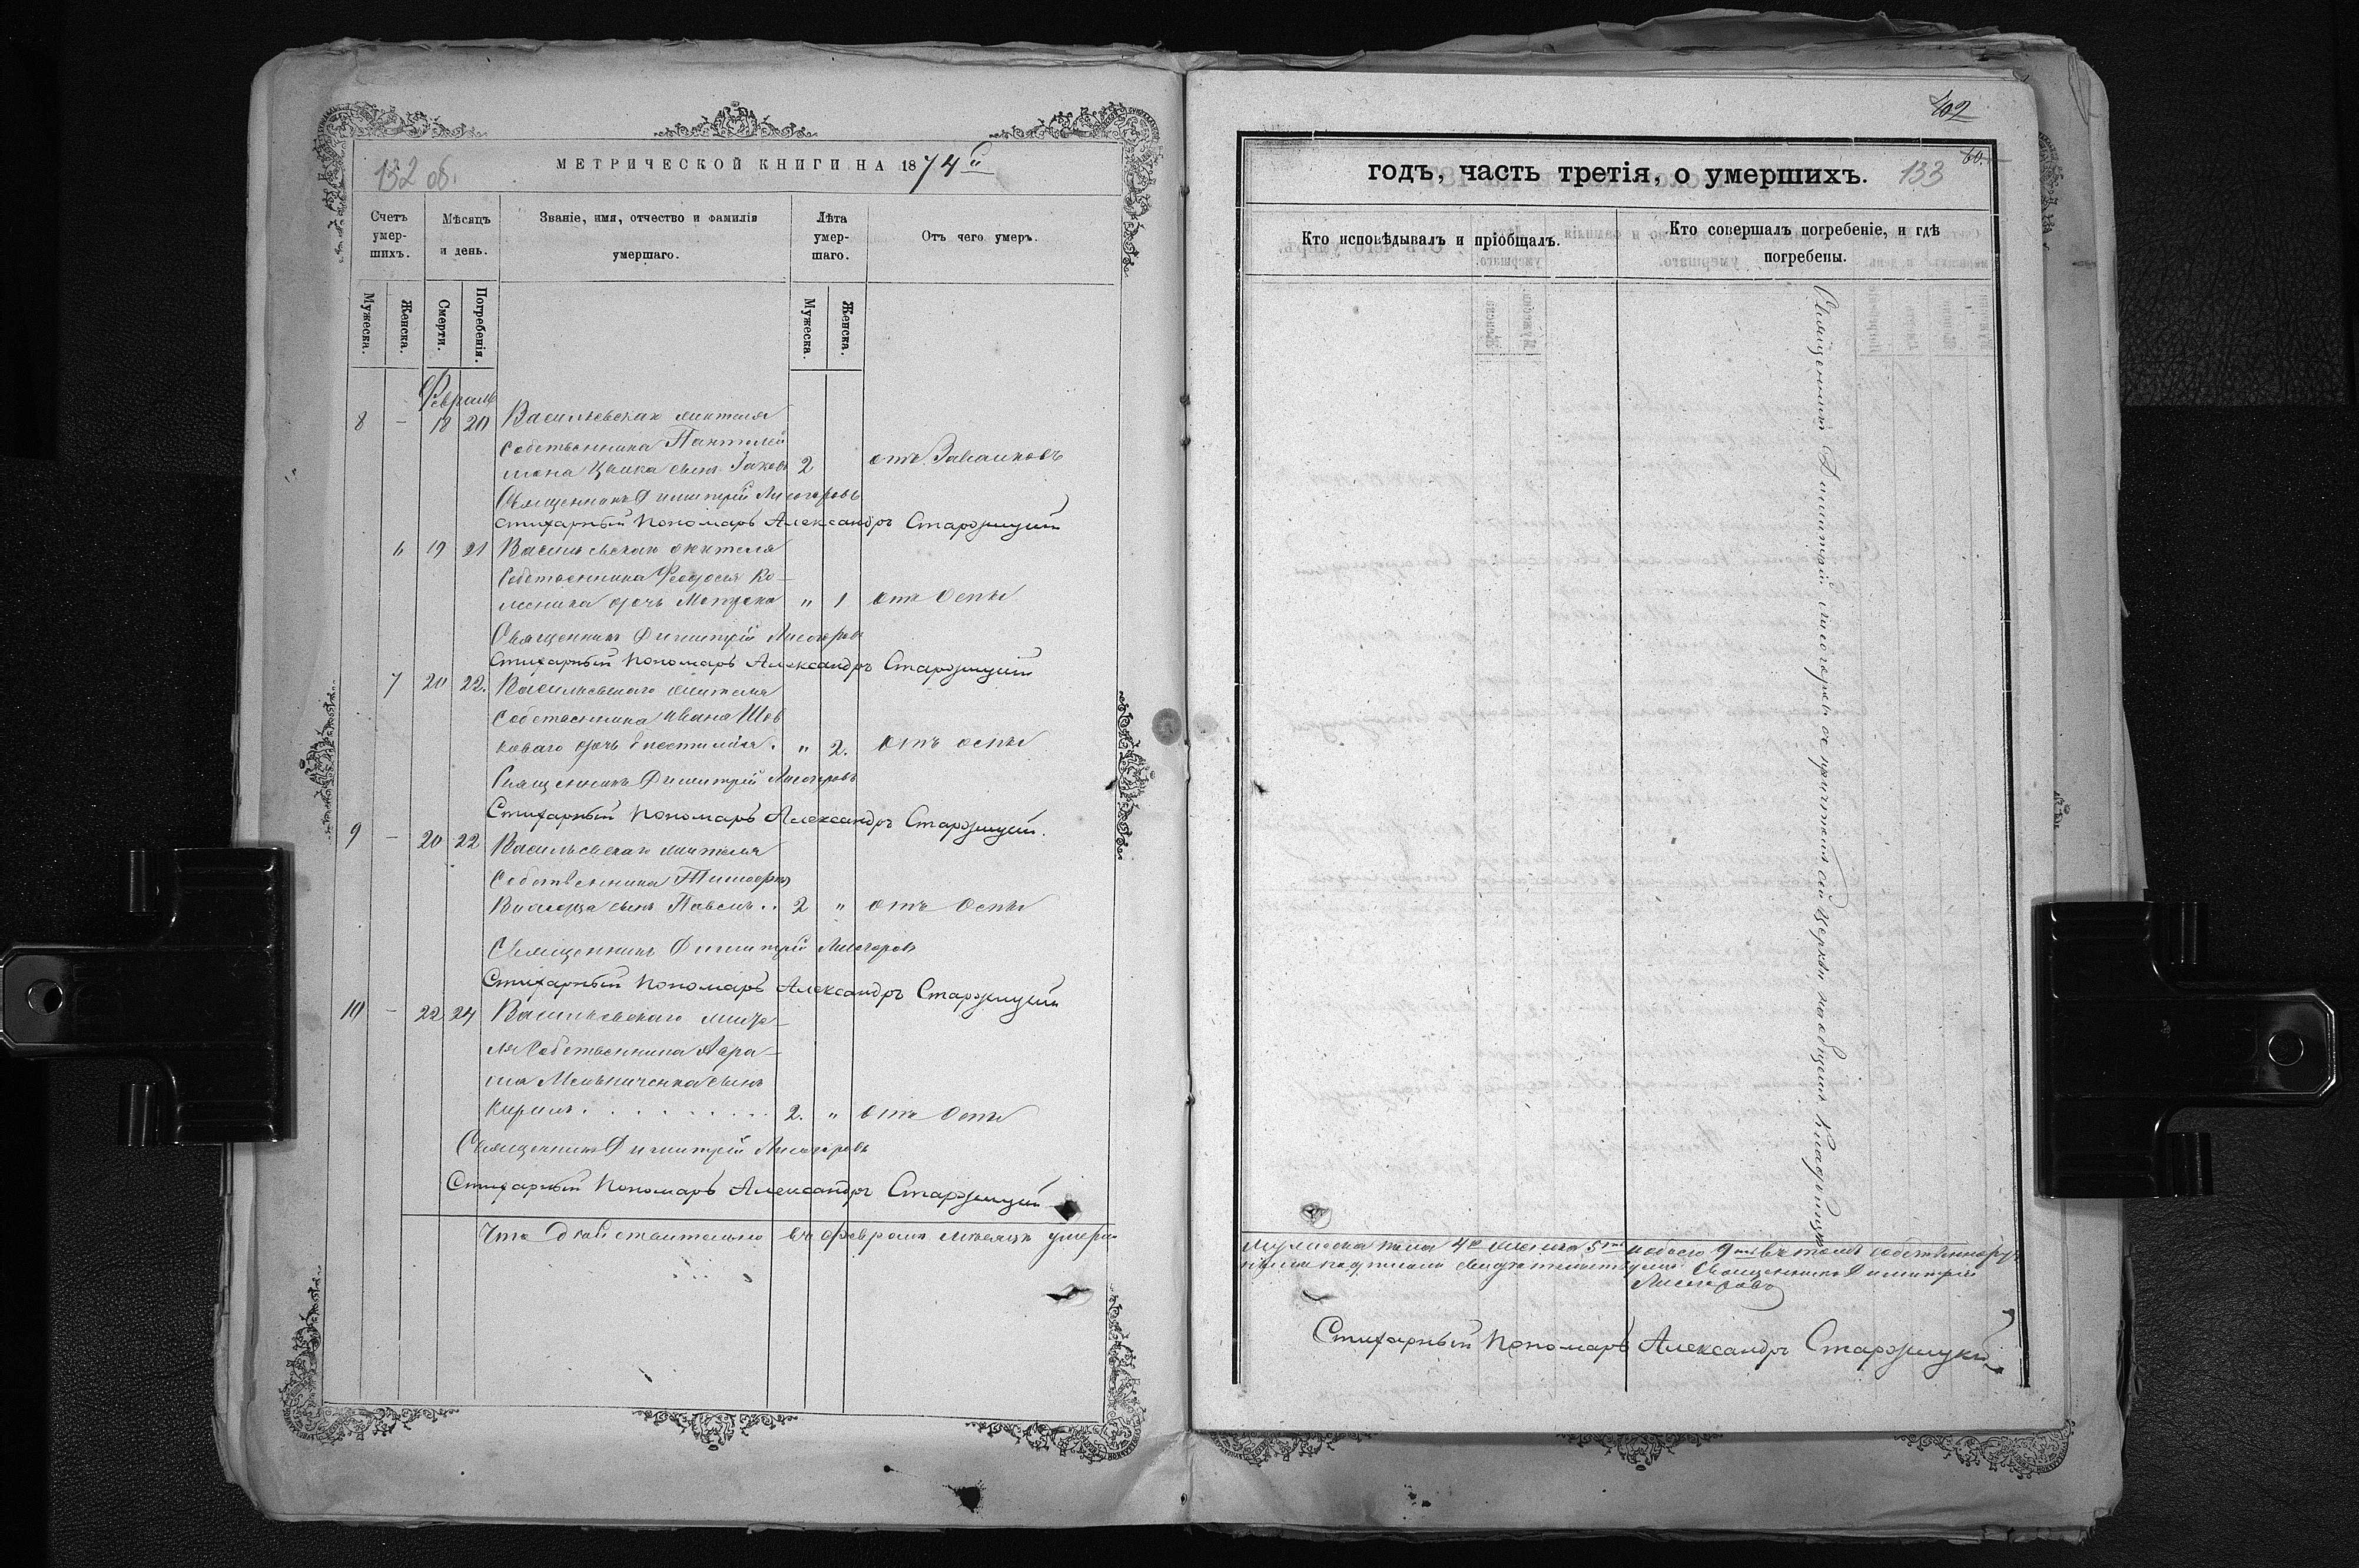 132 об.
МЕТРИЧЕСКОЙ КНИГИ НА 1874й
Счетъ умер-шихъ.
Мѣсяцъ и день.
Званіе, имя, отчество и фамилія умершаго.
Лѣта умер-шаго.
Отъ чего умеръ.
Мужеска.
Женска.
Смерти.
Погребенія.
Мужеска.
Женска.
Февраль
8 – 18 20 Васильевскаго жителя
собственника Пантелей
мона сынъ Яковъ 2 отъ
Священникъ Димитрій Лисогоровъ
Стихарный Пономарь Александръ
6 19 21 Васильевскаго жителя
Собственника Феодосія Ко-
лесника дочь Матрона " 1 отъ Оспы
Священникъ Димитрій Лисогоровъ
Стихарный Пономарь Александръ
7 20 22. Васильевскаго жителя
Собственника Ивана Шев
коваго дочь " 2. отъ оспы
Священникъ Димитрій Лисогоровъ
Стихарный Пономарь Александръ
9 – 20 22 Васильевскаго жителя
Собственника
сынъ Павелъ.. 2 " отъ Оспы
Священникъ Димитрій Лисогоровъ
Стихарный Пономарь Александръ
10 – 22 24 Васильевскаго жите-
ля Собственника Авра-
ма Мельниченка сынъ
Кирилъ. . . . . . . . . 2. " отъ Оспы
Священникъ Димитрій Лисогоровъ
Стихарный Пономарь Александръ
Что действительно въ феврале месяце умерло
402
60.
годъ, часть третія, о умершихъ. 133
Кто исповѣдывалъ и пріобщалъ.
Кто совершалъ погребеніе, и гдѣ погребены.
Священникъ Димитрій Лисогоровъ съ причтомъ на общемъ Кладбищѣ
мужеска пола женска обоего 9 въ томъ собственнору
подписали Священникъ Димитрій
Лисогоровъ
Стихарный Пономарь Александръ